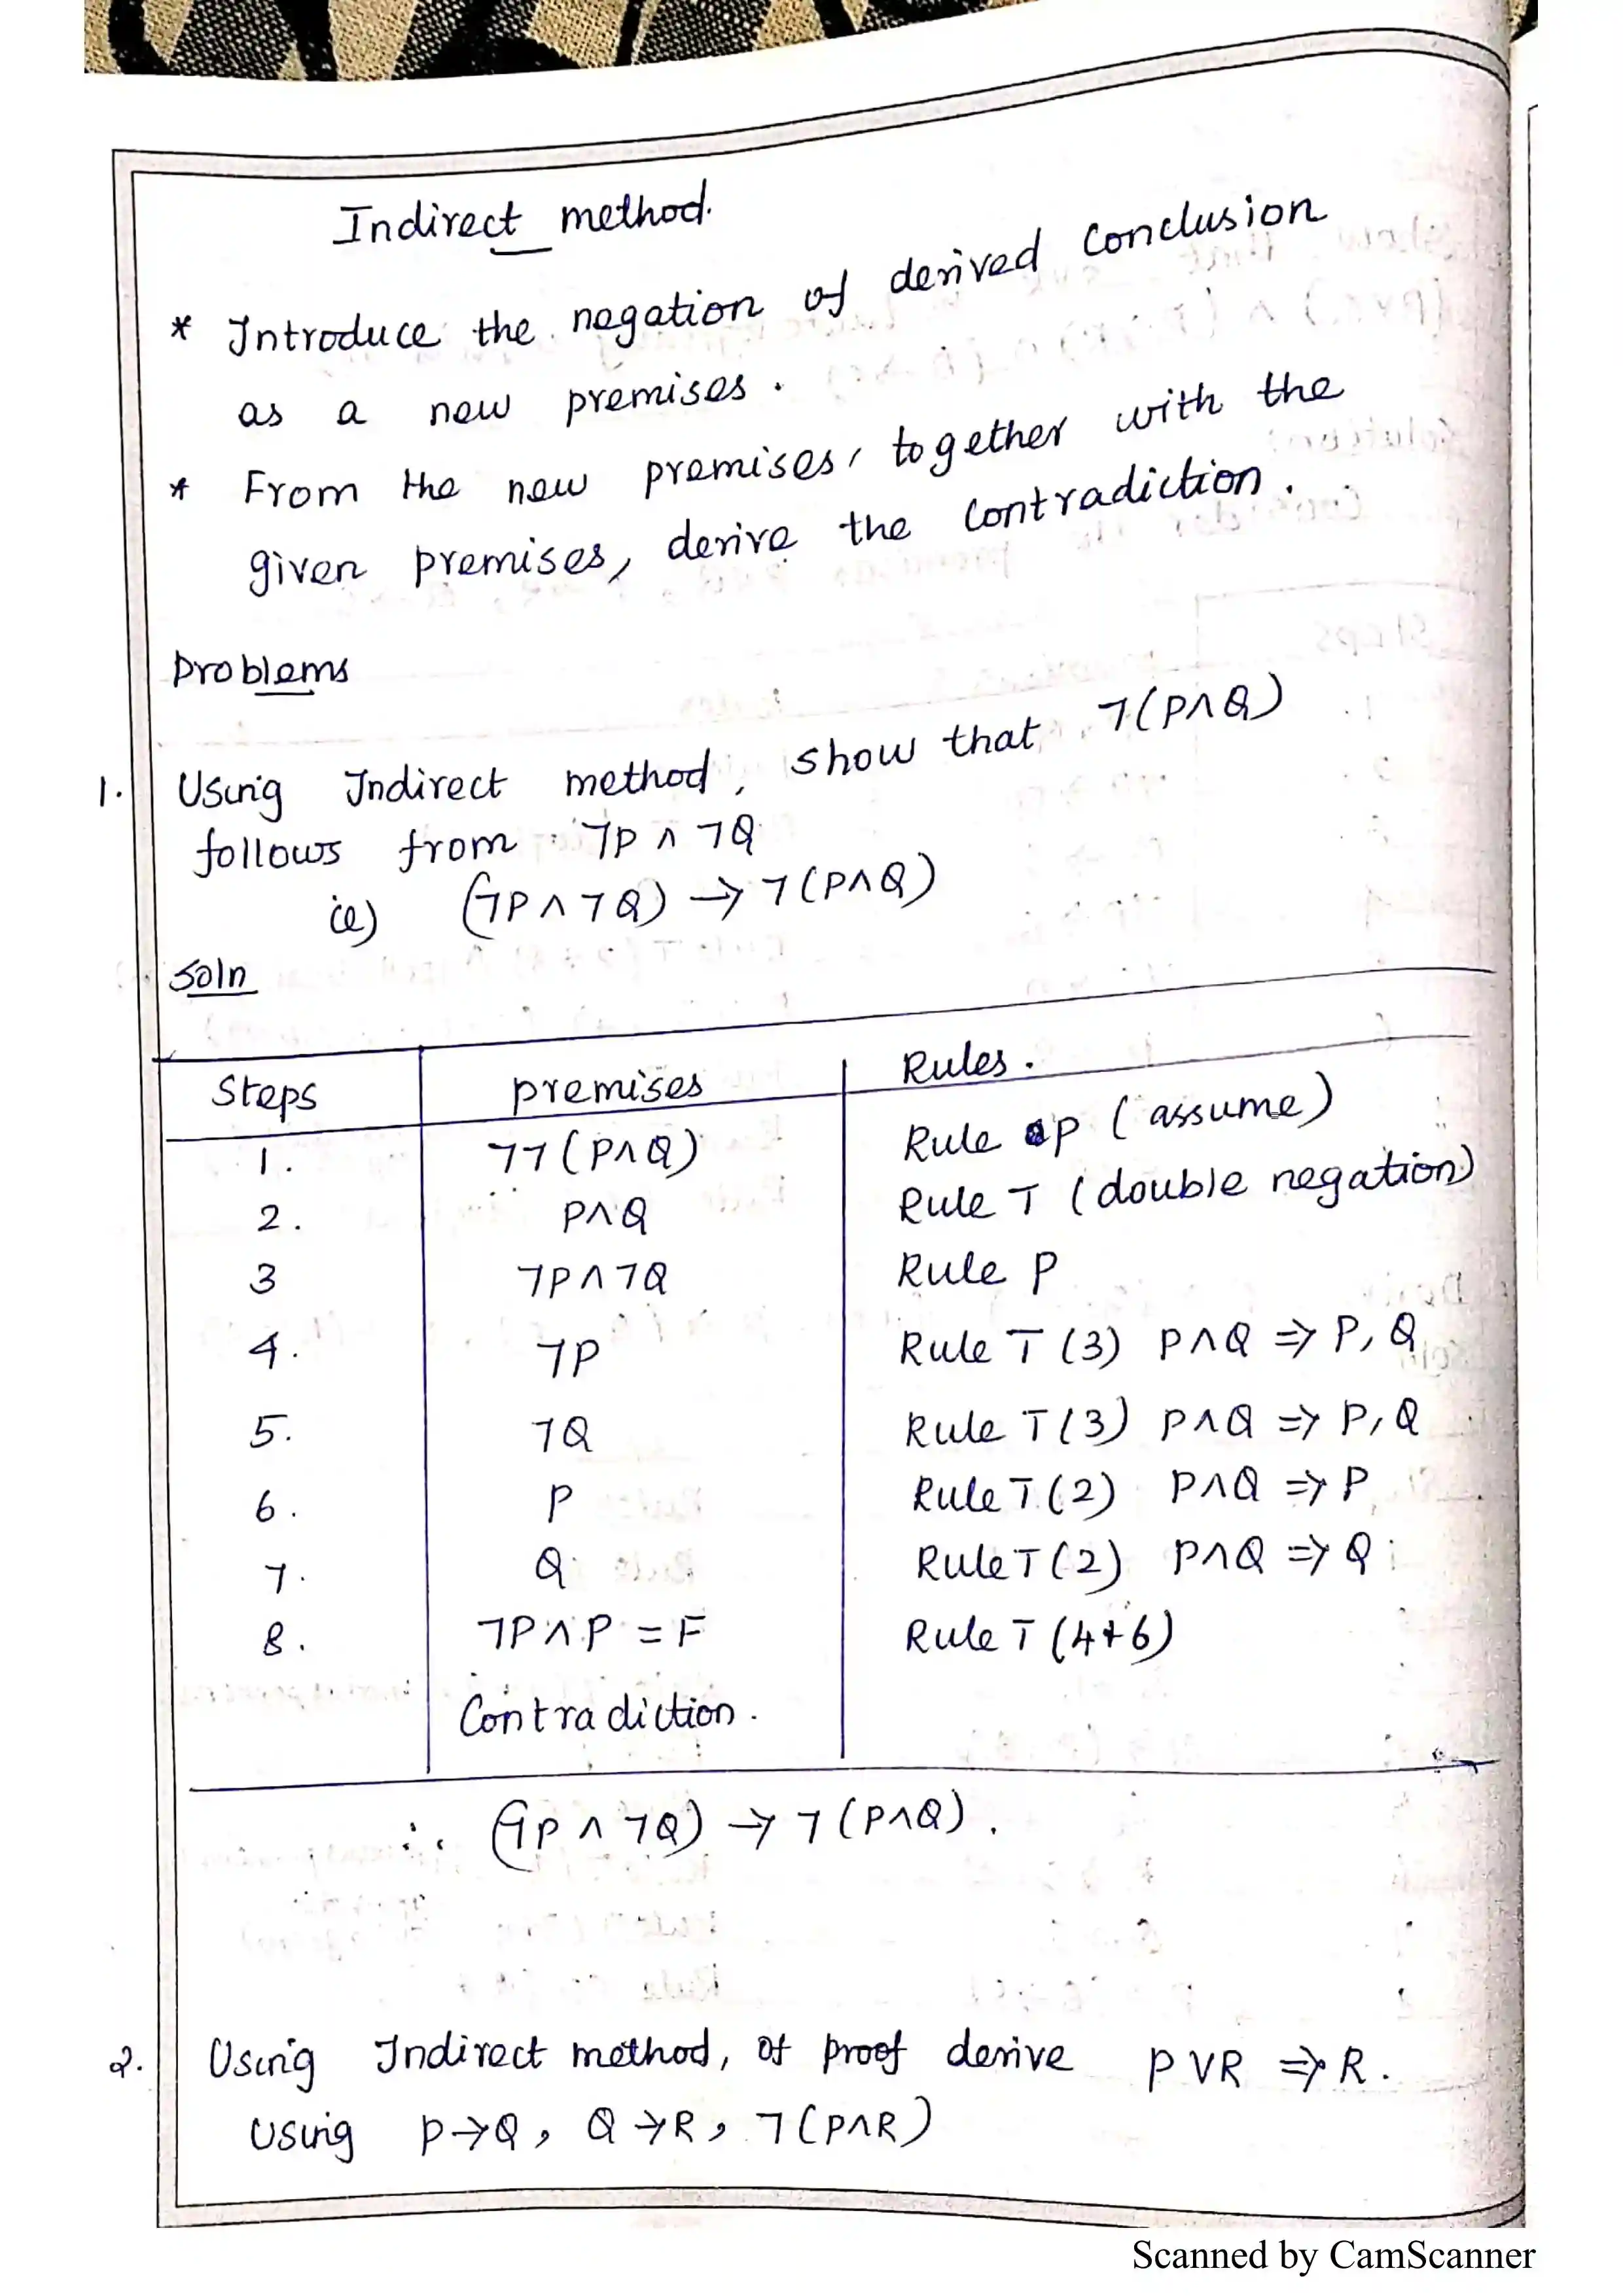 Indirect method.
* Introduce the negation of derived conclusion
as a new premises.
* From the new premises, together with the
given premises, derive the contradiction.
Problems
1. Using Indirect method, show that ¬(P∧Q)
follows from ¬P ∧ ¬Q
ie) (¬P ∧ ¬Q) → ¬(P∧Q)
Soln
Steps premises Rules.
1. ¬¬(P∧Q) Rule P (assume)
2. P∧Q Rule T (double negation)
3 ¬P∧¬Q Rule P
4. ¬P Rule T (3) P∧Q ⇒ P, Q
5. ¬Q Rule T (3) P∧Q ⇒ P, Q
6. P Rule T (2) P∧Q ⇒ P
7. Q Rule T (2) P∧Q ⇒ Q
8. ¬P∧P = F Rule T (4+6)
Contradiction.
∴ (¬P ∧ ¬Q) → ¬(P∧Q).
2. Using Indirect method, of proof derive P∨R ⇒ R.
Using P→Q, Q→R, ¬(P∧R)
Scanned by CamScanner